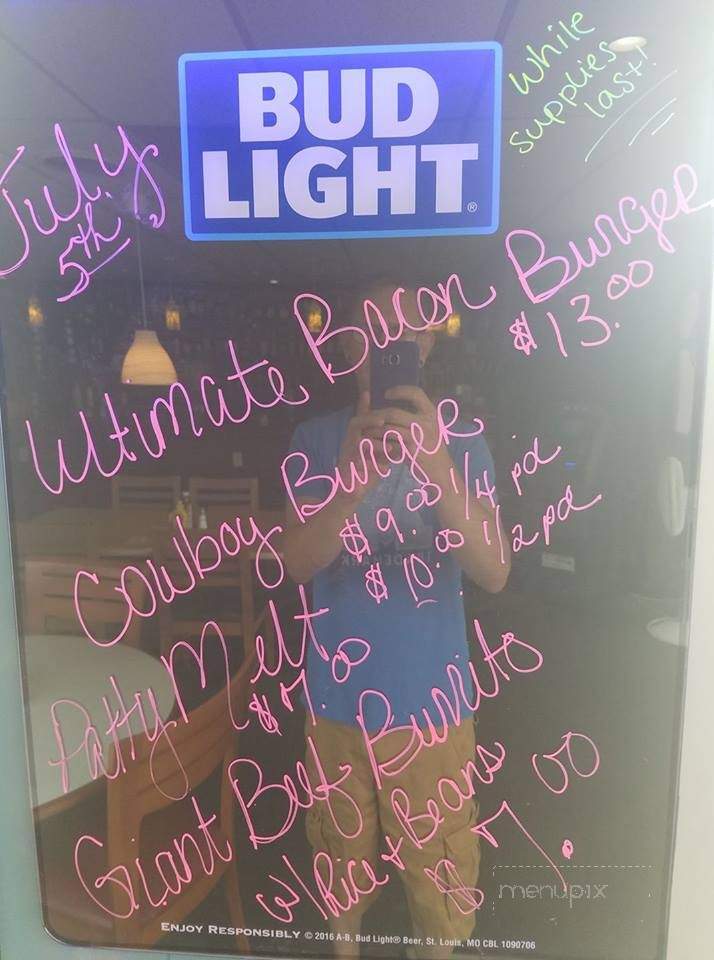 BUD
LIGHT®
While
supplies
last!
July
5th
Ultimate Bacon Burger
$13.00
Cowboy Burger
$9.00 1/4 pd
$10.00 1/2 pd
Patty Melt
$7.00
Giant Beef Burrito
w/ Rice & Beans
$7.00
menupix
ENJOY RESPONSIBLY © 2016 A-B, Bud Light® Beer, St. Louis, MO CBL 1090706